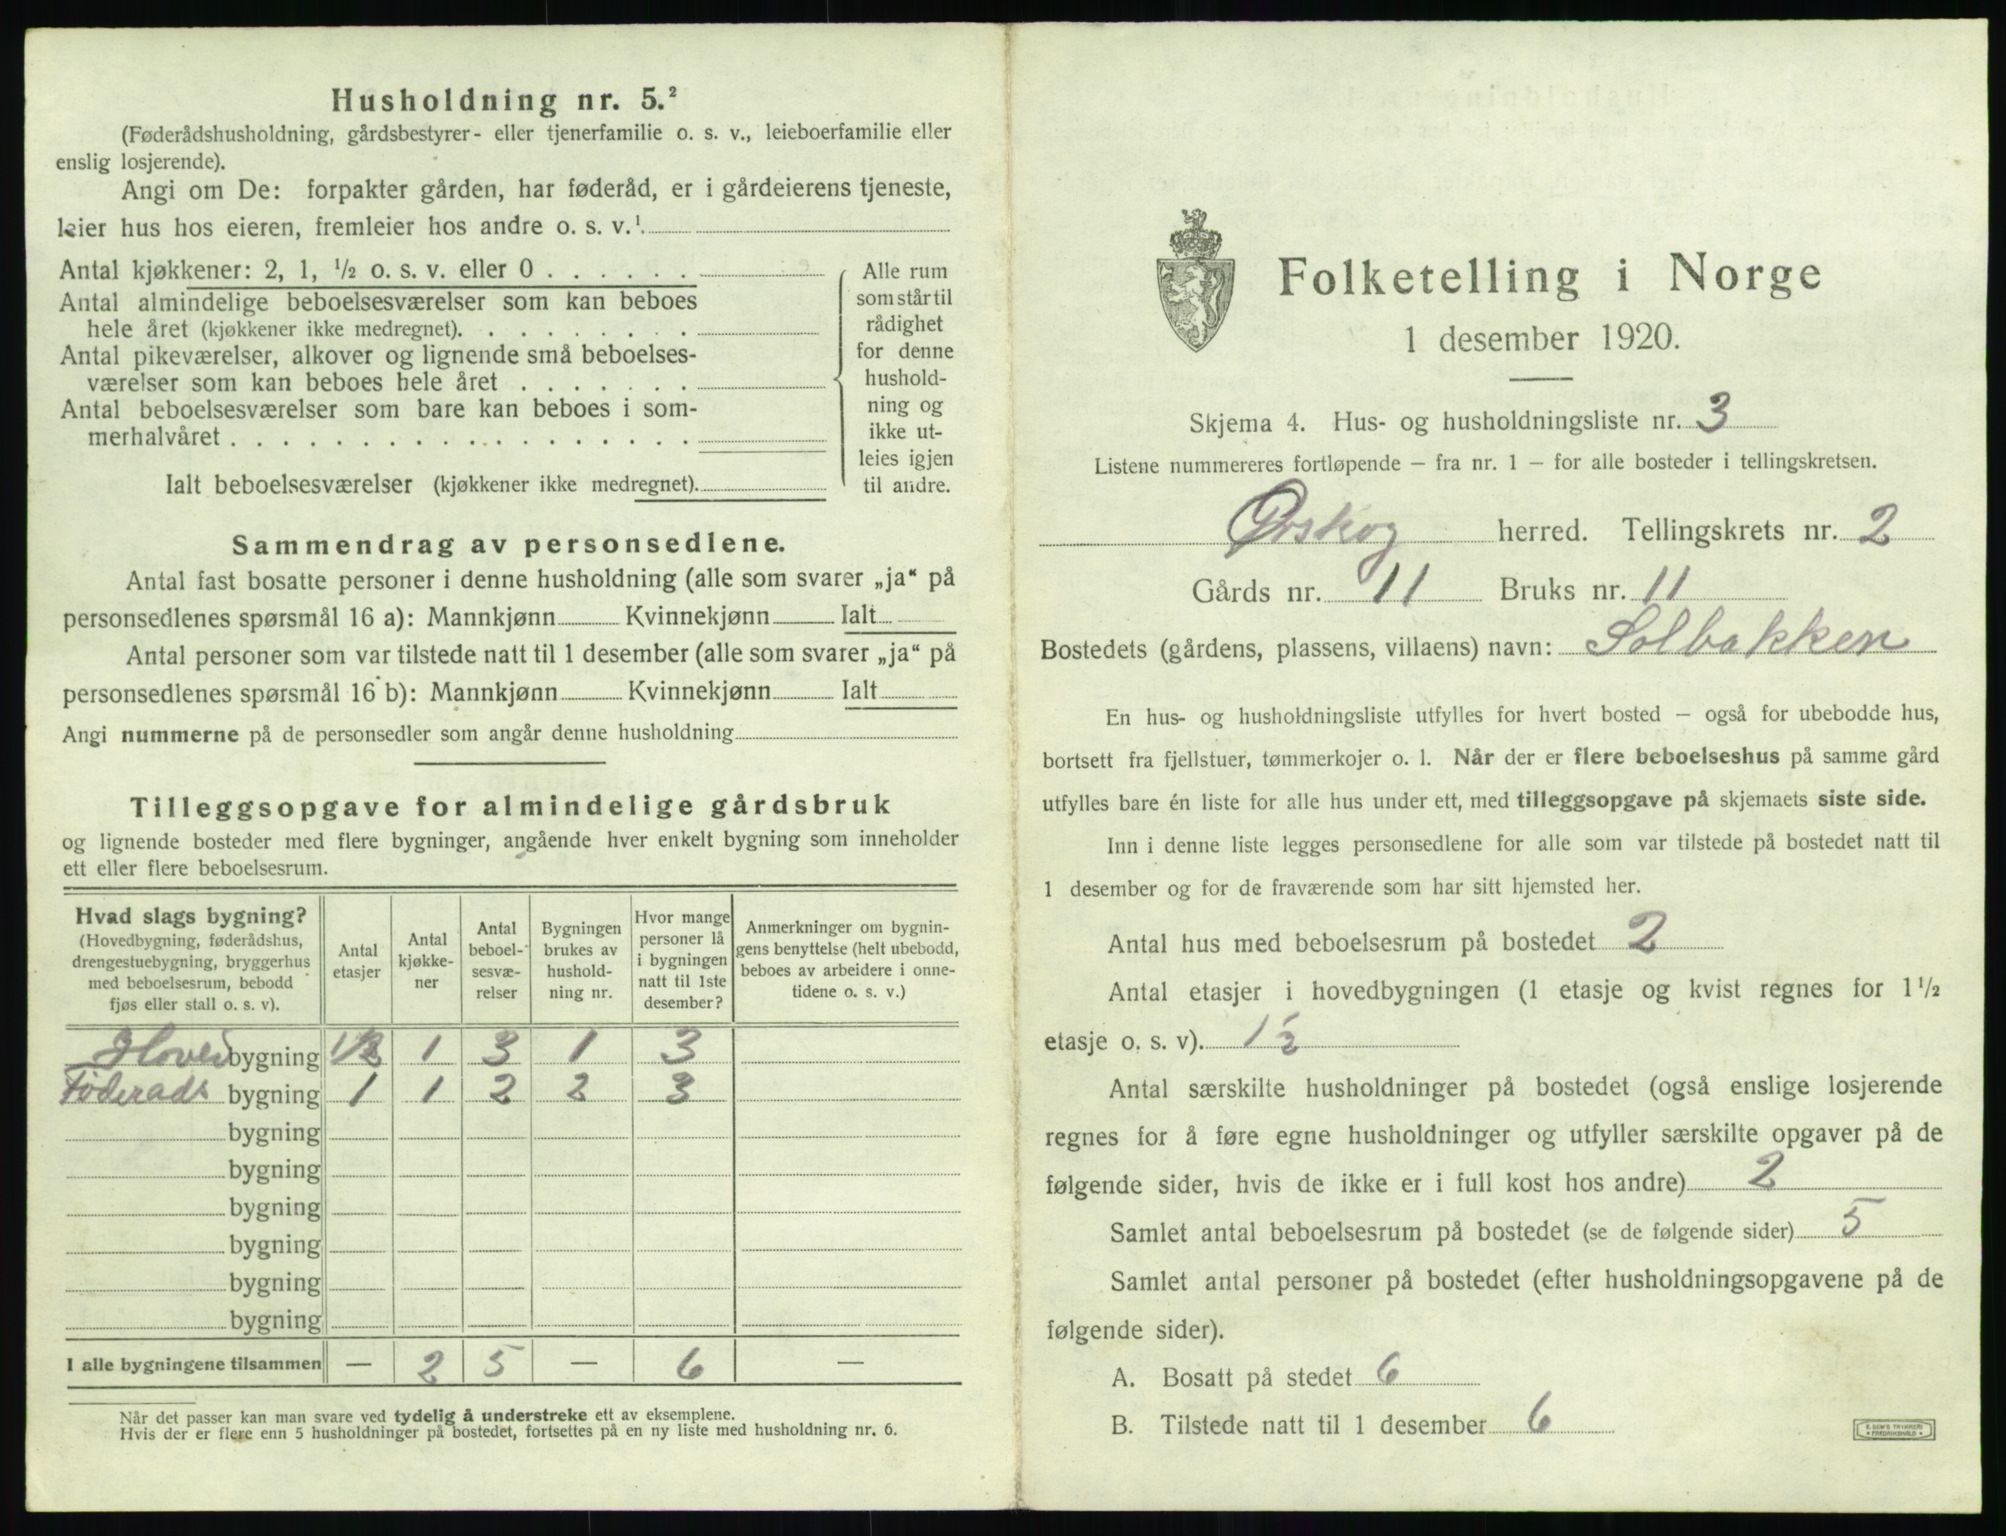 Husholdning nr. 5.²
(Føderådshusholdning, gårdsbestyrer- eller tjenerfamilie o. s. v., leieboerfamilie eller
enslig losjerende).
Angi om De: forpakter gården, har føderåd, er i gårdeierens tjeneste,
leier hus hos eieren, fremleier hos andre o. s. v.¹
Antal kjøkkener: 2, 1, ½ o. s. v. eller 0 . . . . . .
Antal almindelige beboelsesværelser som kan beboes
hele året (kjøkkener ikke medregnet). . . . . . . . .
Antal pikeværelser, alkover og lignende små beboelses-
værelser som kan beboes hele året . . . . . . .
Antal beboelsesværelser som bare kan beboes i som-
merhalvåret . . . . . . . . . . . . . . . . . .
Ialt beboelsesværelser (kjøkkener ikke medregnet)
Alle rum
som står til
rådighet
for denne
hushold-
ning og
ikke ut-
leies igjen
til andre.
Sammendrag av personsedlene.
Antal fast bosatte personer i denne husholdning (alle som svarer „ja“ på
personsedlenes spørsmål 16 a): Mannkjønn Kvinnekjønn Ialt
Antal personer som var tilstede natt til 1 desember (alle som svarer „ja“ på
personsedlenes spørsmål 16 b): Mannkjønn Kvinnekjønn Ialt
Angi nummerne på de personsedler som angår denne husholdning
Tilleggsopgave for almindelige gårdsbruk
og lignende bosteder med flere bygninger, angående hver enkelt bygning som inneholder
ett eller flere beboelsesrum.
Hvad slags bygning?
(Hovedbygning, føderådshus,
drengestuebygning, bryggerhus
med beboelsesrum, bebodd
fjøs eller stall o. s. v).
Antal
etasjer
Antal
kjøkke-
ner
Antal
beboel-
sesvæ-
relser
Bygningen
brukes av
hushold-
ning nr.
Hvor mange
personer lå
i bygningen
natt til 1ste
desember?
Anmerkninger om bygnin-
gens benyttelse (helt ubebodd,
beboes av arbeidere i onne-
tidene o. s. v.)
Hoved bygning 1½ 1 3 1 3
Føderads bygning 1 1 2 2 3
bygning
bygning
bygning
bygning
bygning
bygning
I alle bygningene tilsammen — 2 5 — 6 —
Når det passer kan man svare ved tydelig å understreke ett av eksemplene.
Hvis der er flere enn 5 husholdninger på bostedet, fortsettes på en ny liste med husholdning nr. 6.
Folketelling i Norge
1 desember 1920.
Skjema 4. Hus- og husholdningsliste nr. 3
Listene nummereres fortløpende – fra nr. 1 – for alle bosteder i tellingskretsen.
Ørskog herred. Tellingskrets nr. 2
Gårds nr. 11 Bruks nr. 11
Bostedets (gårdens, plassens, villaens) navn: Solbakken
En hus- og husholdningsliste utfylles for hvert bosted – også for ubebodde hus,
bortsett fra fjellstuer, tømmerkojer o. l. Når der er flere beboelseshus på samme gård
utfylles bare én liste for alle hus under ett, med tilleggsopgave på skjemaets siste side.
Inn i denne liste legges personsedlene for alle som var tilstede på bostedet natt til
1 desember og for de fraværende som har sitt hjemsted her.
Antal hus med beboelsesrum på bostedet 2
Antal etasjer i hovedbygningen (1 etasje og kvist regnes for 1½
etasje o. s. v). 1½
Antal særskilte husholdninger på bostedet (også enslige losjerende
regnes for å føre egne husholdninger og utfyller særskilte opgaver på de
følgende sider, hvis de ikke er i full kost hos andre) 2
Samlet antal beboelsesrum på bostedet (se de følgende sider) 5
Samlet antal personer på bostedet (efter husholdningsopgavene på de
følgende sider).
A. Bosatt på stedet 6
B. Tilstede natt til 1 desember 6